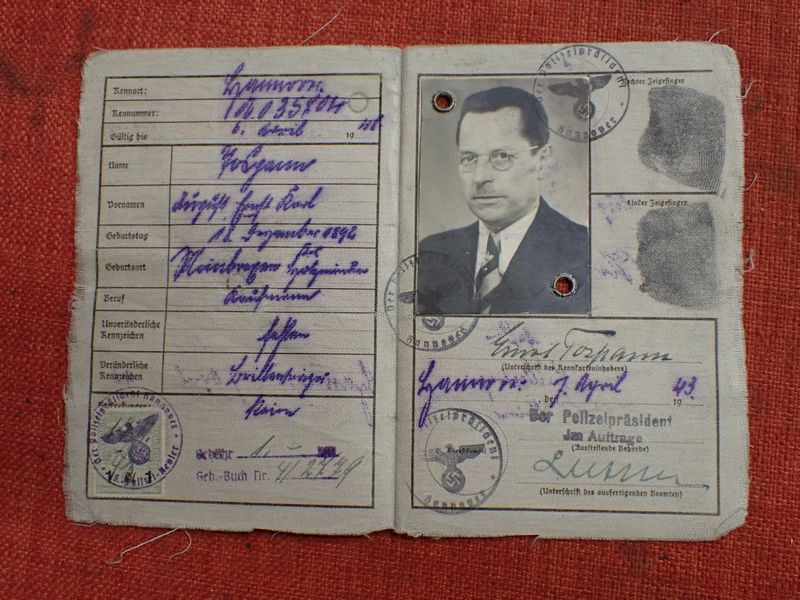 Kennort: Hannover.
Kennummer: A 035804
Gültig bis 6. April 1948
Name
Vornamen August Ernst Karl
Geburtstag 18. Dezember 1892
Geburtsort Meinbrexen
Holzminden
Beruf Kaufmann
Unveränderliche
Kennzeichen fehlen
Veränderliche
Kennzeichen Brillenträger
Bemerkungen: Keine
Der Polizeipräsident Hannover
Gebühr 1.- RM
Geb.-Buch Nr.
Der Polizeipräsident
Hannover
Rechter Zeigefinger
Linker Zeigefinger
Der Polizeipräsident
Hannover
Ernst
(Unterschrift des Kennkarteninhabers)
Hannover, den 7. April 1943
Der Polizeipräsident
Jm Auftrage
(Ausstellende Behörde)
Polizeipräsident
Hannover
(Dienststempel)
(Unterschrift des ausfertigenden Beamten)